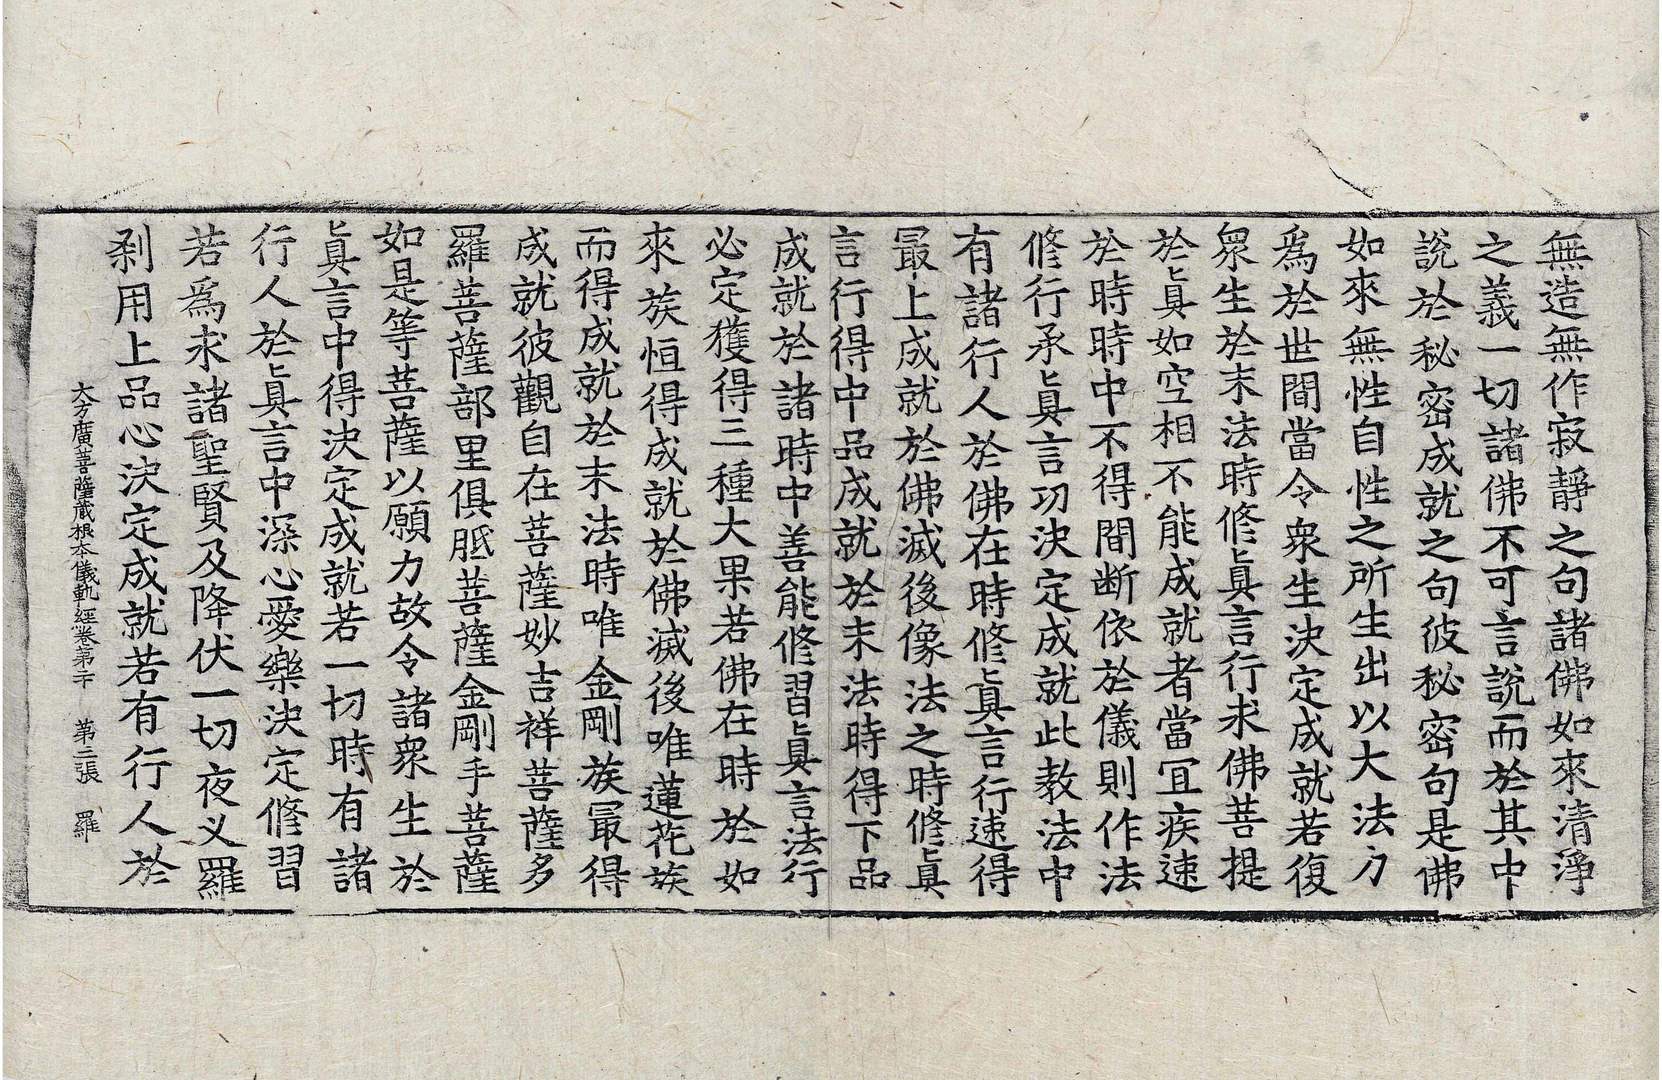 無造無作寂靜之句諸佛如來清淨
之義一切諸佛不可言說而於其中
說於秘密成就之句彼秘密句是佛
如來無性自性之所生出以大法力
爲於世間當令衆生決定成就若復
衆生於末法時修眞言行求佛菩提
於眞如空相不能成就者當冝疾速
於時時中不得間斷依於儀則作法
修行承眞言功決定成就此教法中
有諸行人於佛在時修眞言行速得
最上成就於佛滅後像法之時修眞
言行得中品成就於末法時得下品
成就於諸時中善能修習眞言法行
必定獲得三種大果若佛在時於如
來族恒得成就於佛滅後唯蓮花族
而得成就於末法時唯金剛族最得
成就彼觀自在菩薩妙吉祥菩薩多
羅菩薩部里俱胝菩薩金剛手菩薩
如是等菩薩以願力故令諸衆生於
眞言中得決定成就若一切時有諸
行人於眞言中深心愛樂決定修習
若爲求諸聖賢及降伏一切夜叉羅
剎用上品心決定成就若有行人於
大方廣菩薩藏根本儀軌經卷第二十 第三張 羅